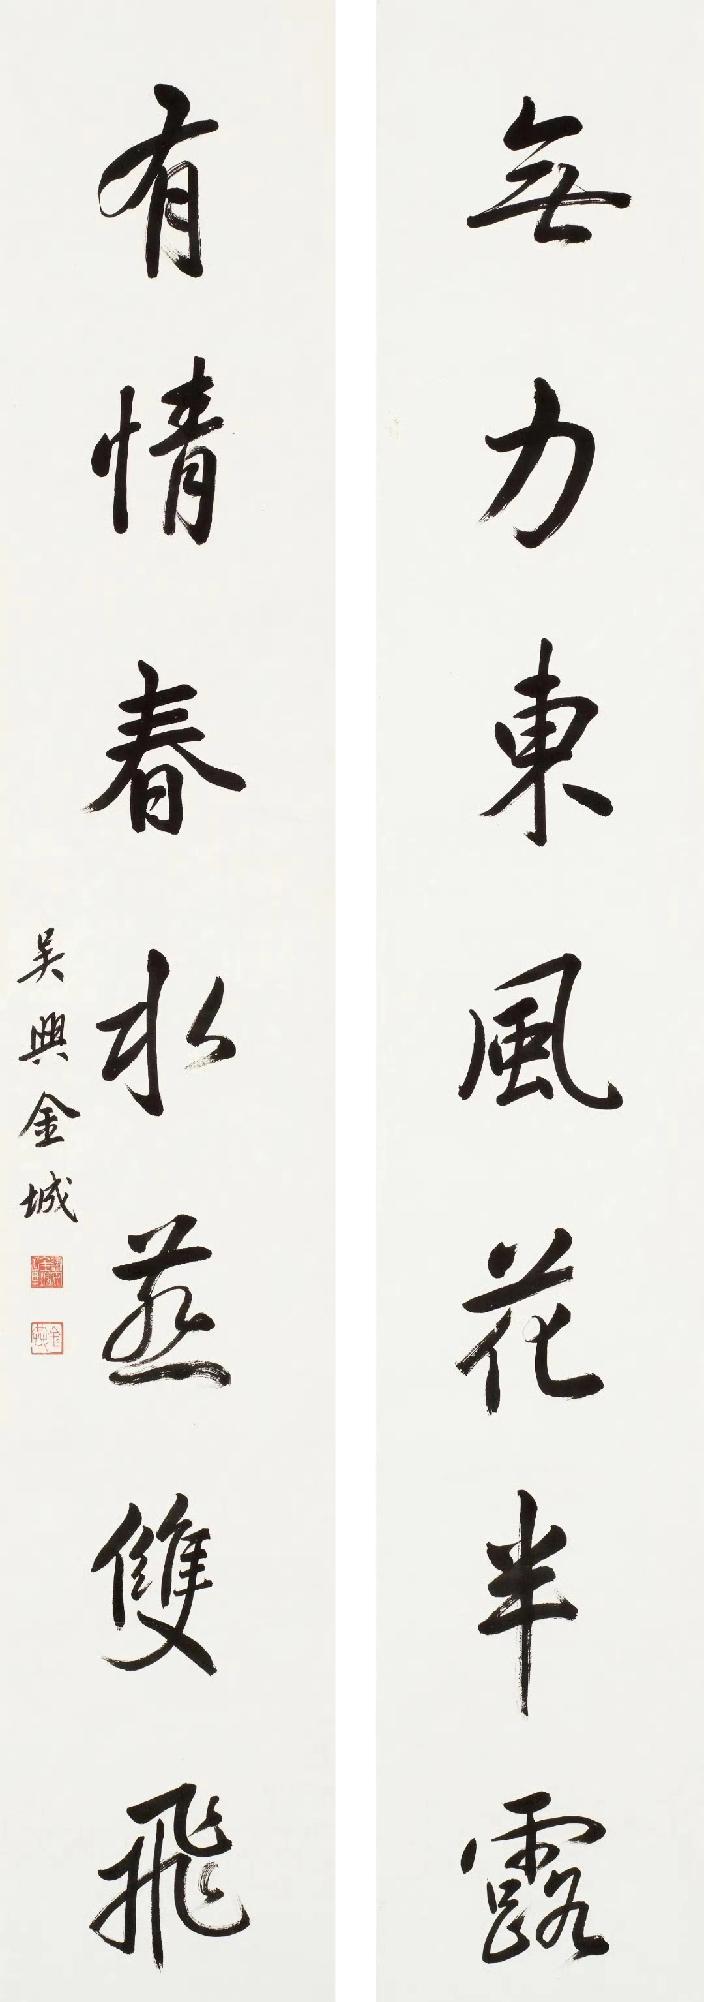 無力東風花半露
有情春水燕雙飛
吳興金城